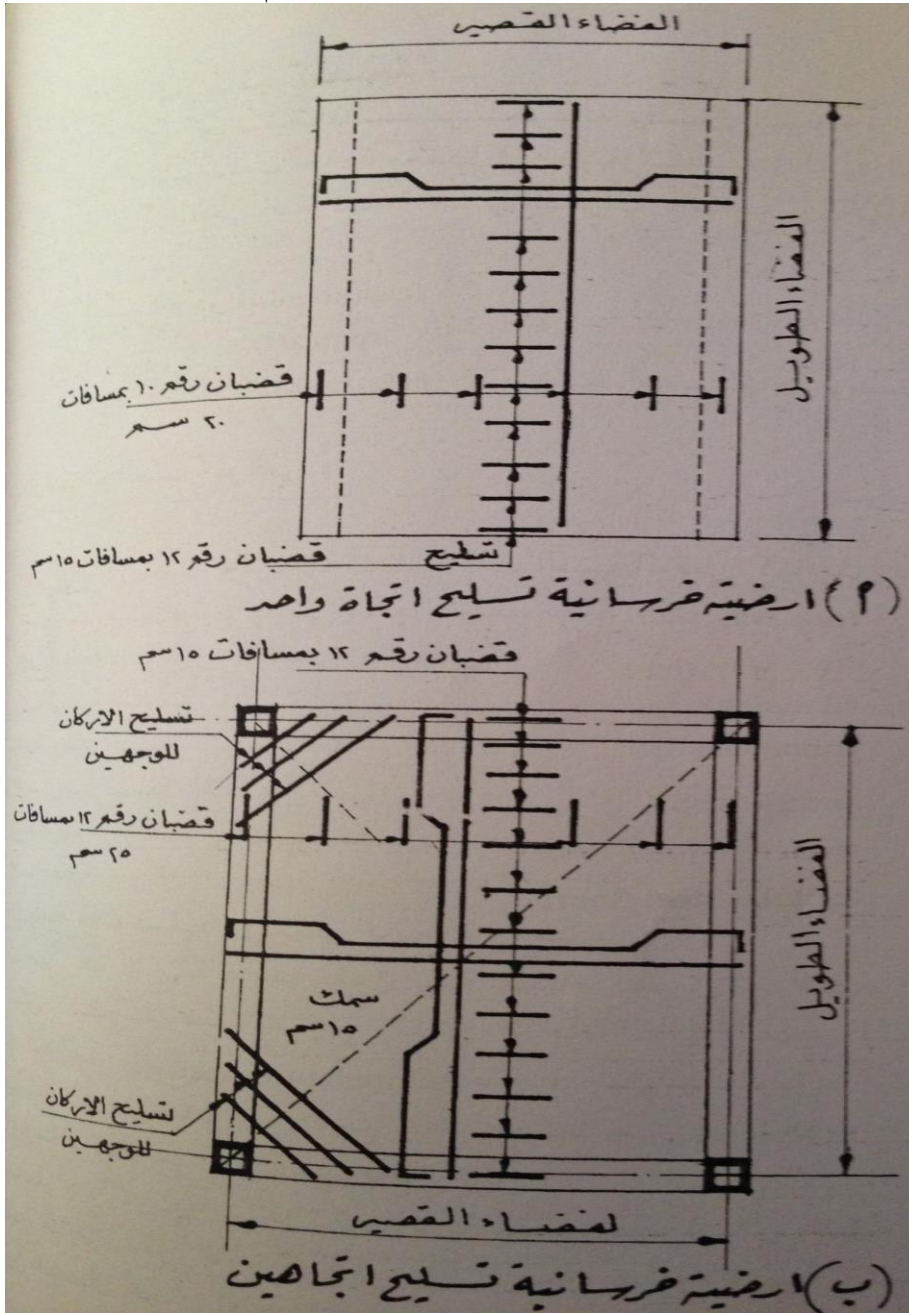 الفضاء القصير
الفضاء الطويل
قضبان رقم ١٠ بمسافات
٢٠ سم
تسطيح
قضبان رقم ١٢ بمسافات ١٥ سم
(٢) ارضية خرسانية تسليح اتجاة واحد
قضبان رقم ١٢ بمسافات ١٥ سم
تسليح الاركان
للوجهين
قضبان رقم ١٢ بمسافات
٢٥ سم
الفضاء الطويل
سمك
١٥ سم
تسليح الاركان
للوجهين
لفضاء القصير
(ب) ارضية خرسانية تسليح اتجاهين